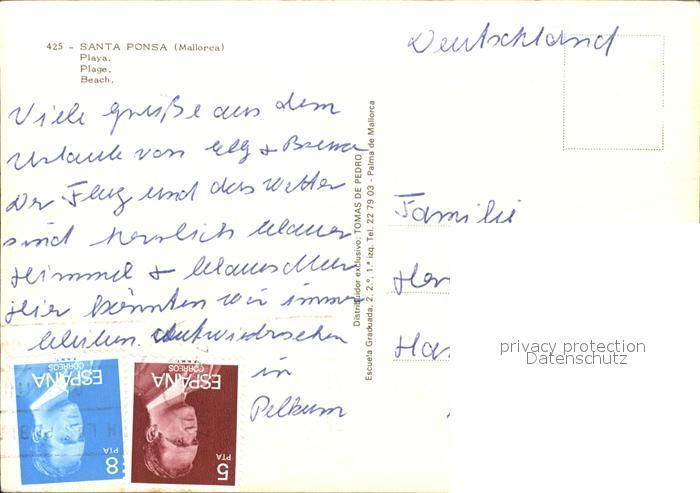 425 - SANTA PONSA (Mallorca)
Playa.
Plage.
Beach.
Viele Grüße aus dem
Urlaub von
Der Flug und das Wetter
sind herrlich blauer
Himmel + blaues Meer
Hier könnten wir immer
bleiben. Aufwiedersehen
in
Pelkum
Distribuidor exclusivo: TOMAS DE PEDRO
Escuela Graduada, 2, 2.º, 1.ª izq. Tel. 22 79 03 - Palma de Mallorca
Deutschland
Familie
privacy protection
Datenschutz
ESPAÑA
CORREOS
8 PTA
ESPAÑA
CORREOS
5 PTA